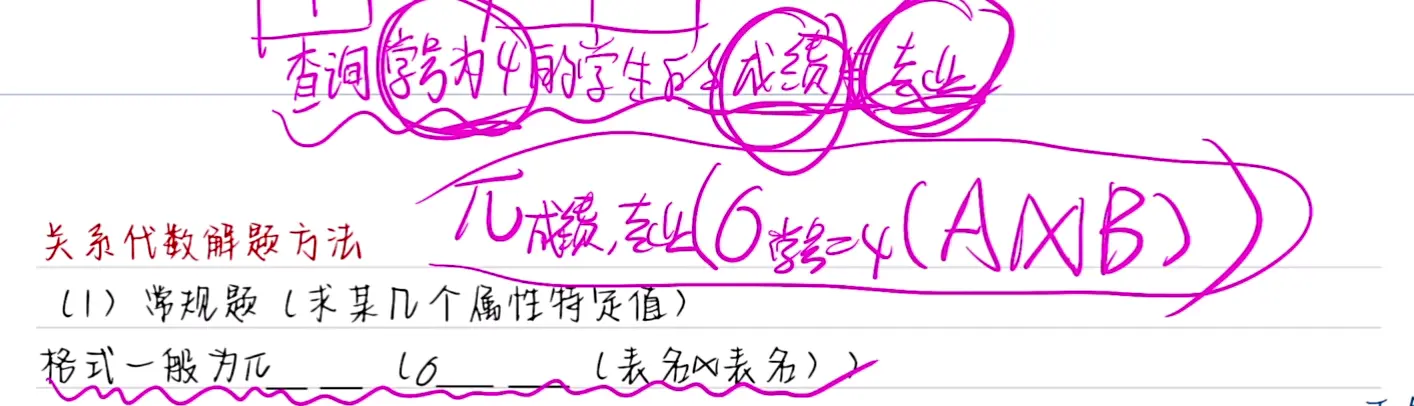 查询学号为4的学生的成绩和专业
π成绩,专业(σ学号=4(A⋈B))
关系代数解题方法
(1)常规题(求某几个属性特定值)
格式一般为π__ __ (σ__ __(表名⋈表名))